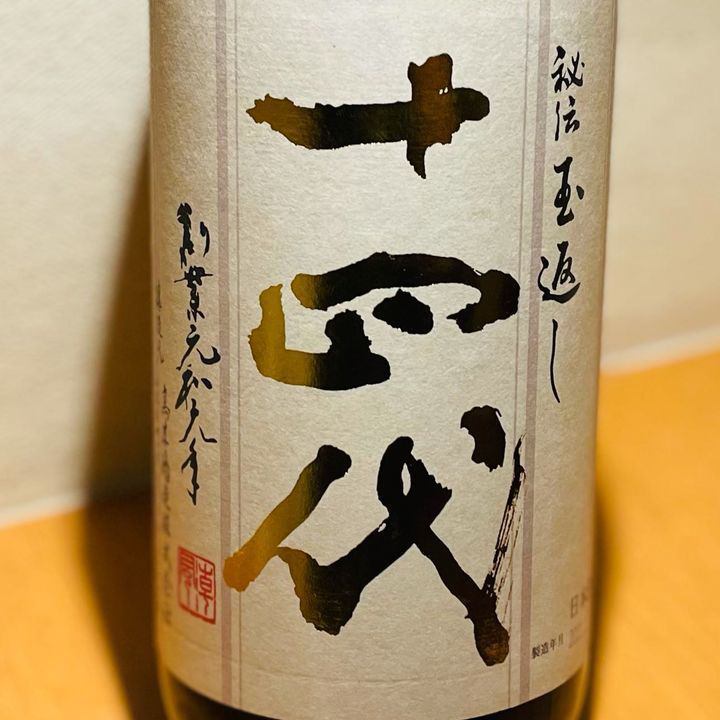 秘伝玉返し
十四代
創業元和元年
製造年月